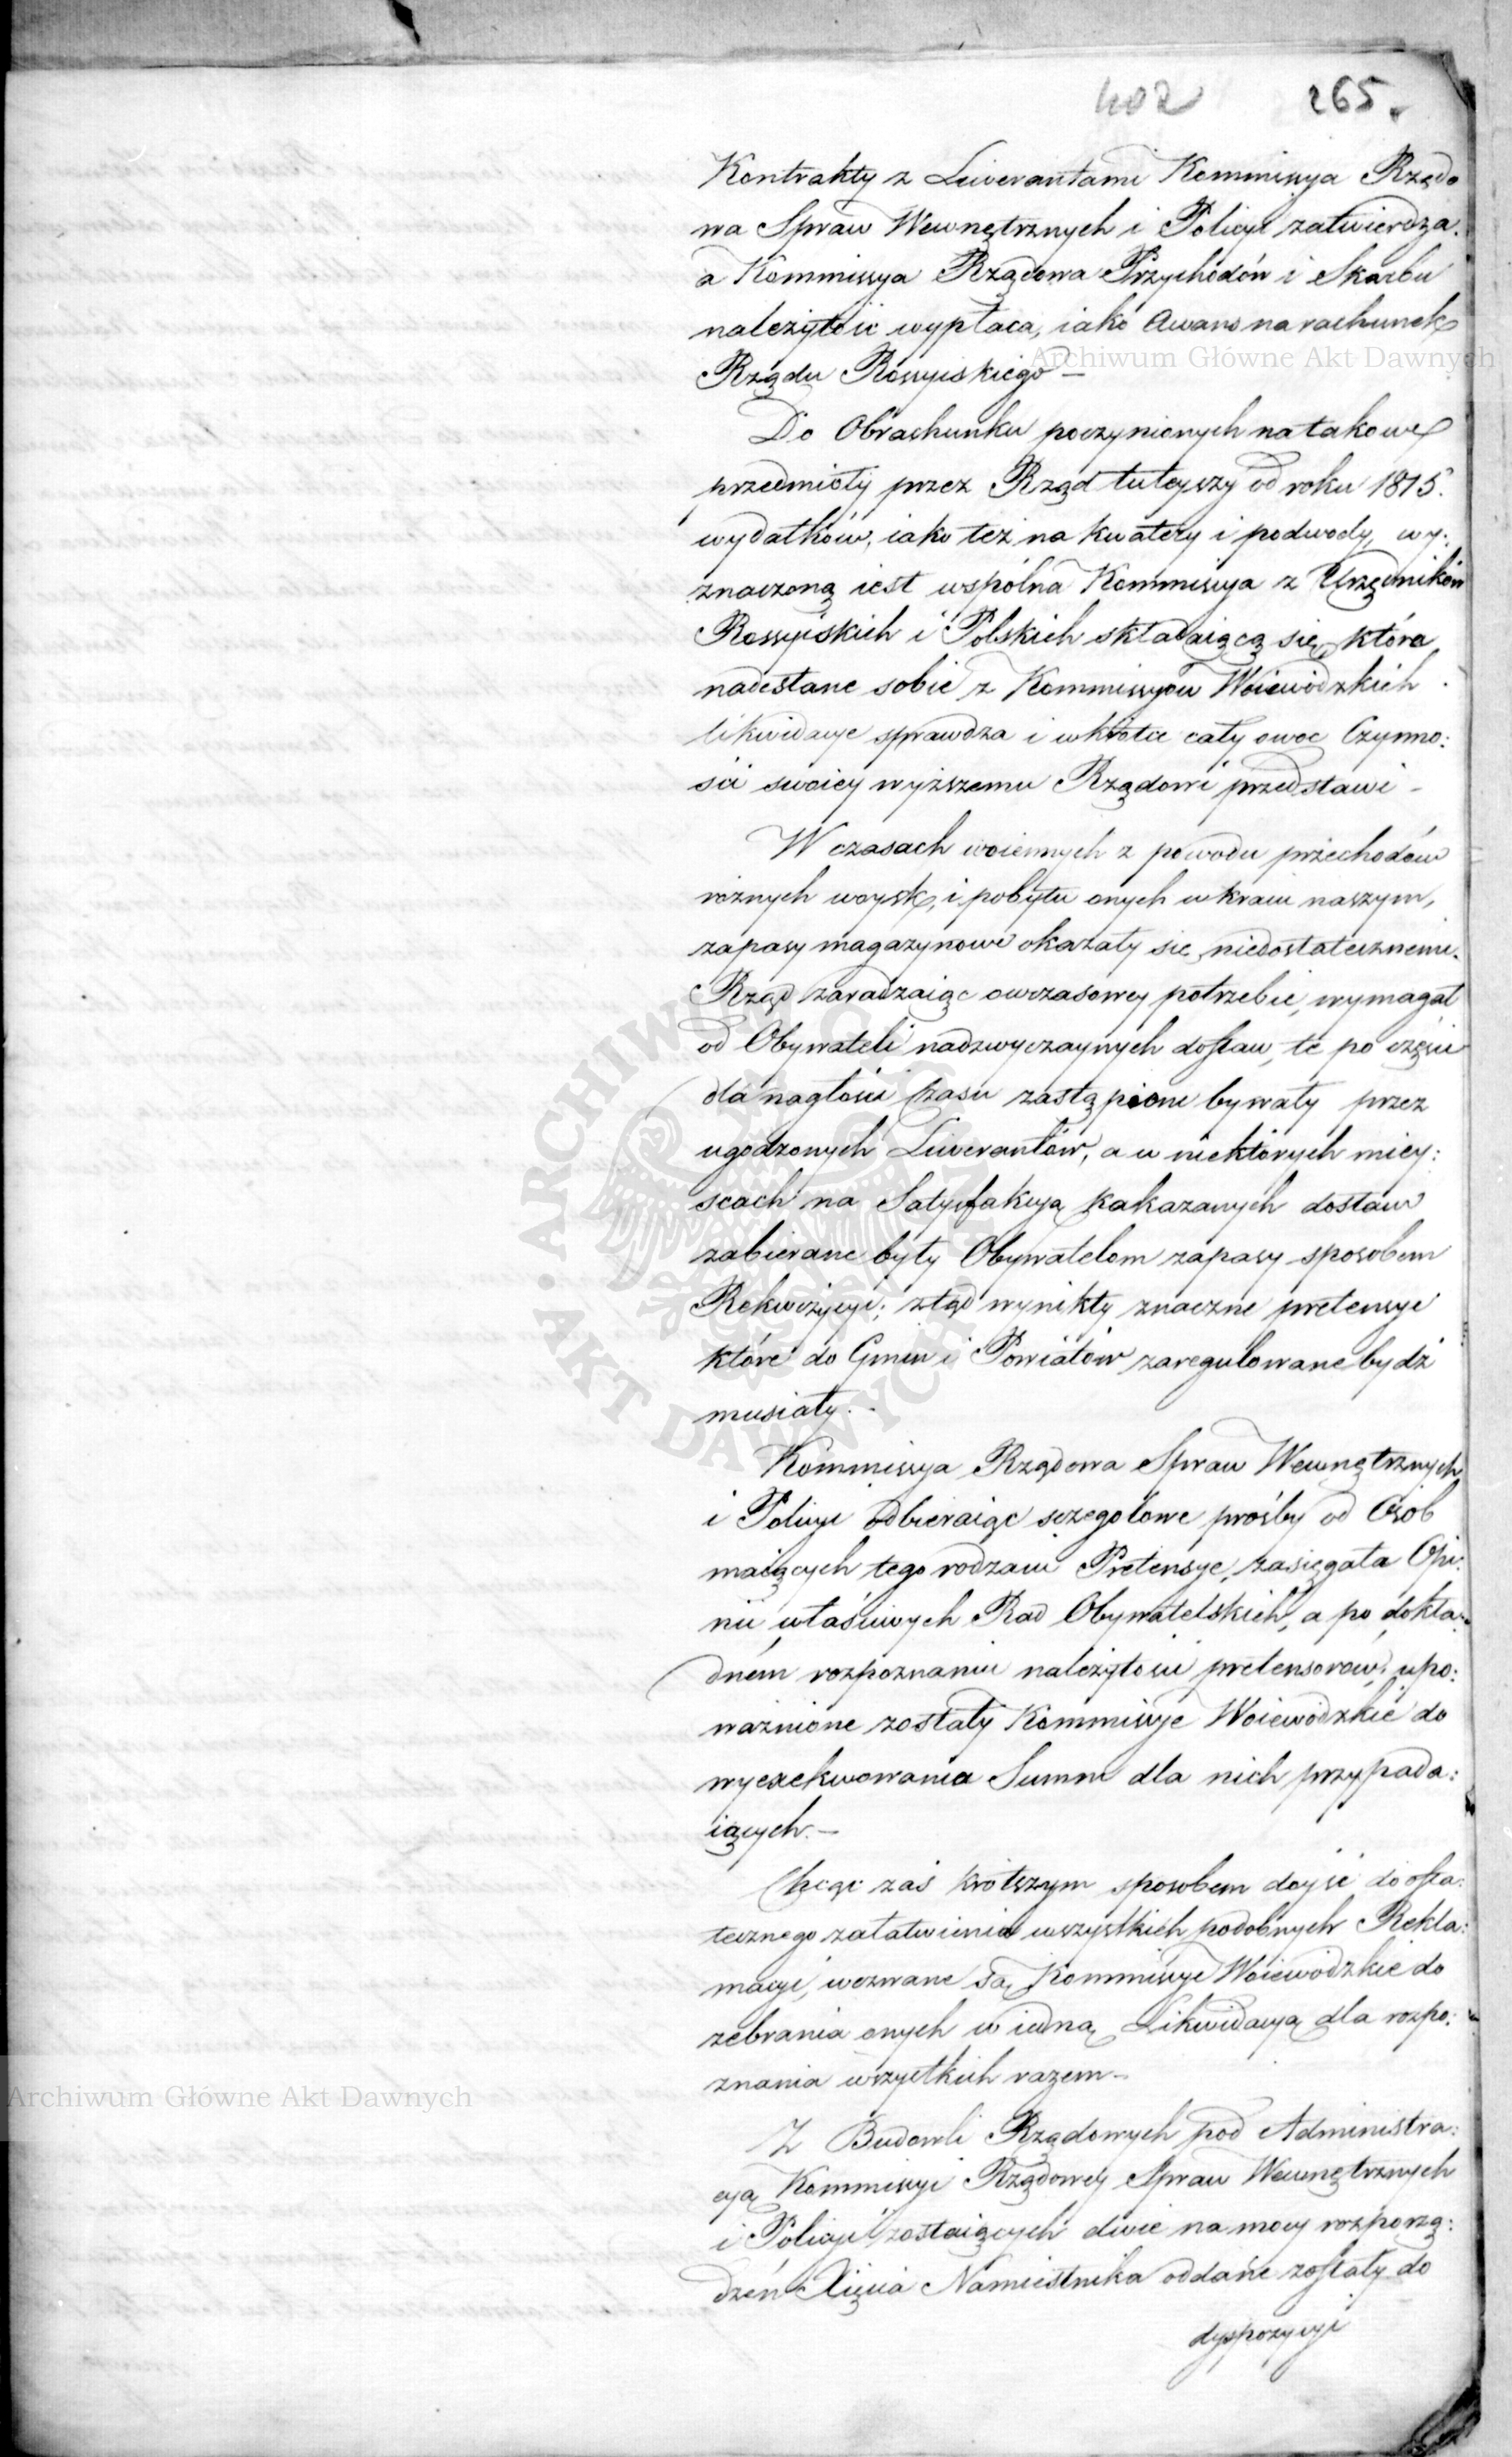 402 265.
Kontrakty z Liwerantami Kommissya Rządo
wa Spraw Wewnętrznych i Policyi zatwierdza.
a Kommissya Rządowa Przychodów i Skarbu
należytość wypłaca, iako Awans na rachunek
Rządu Rossyiskiego –
Do Obrachunku poczynionych na takowe
przedmioty przez Rząd tuteyszy od roku 1815.
wydatków, iako też na kwatery i podwody, wy:
znaczoną iest wspólna Kommissya z Urzędników
Rossyiskich i Polskich składaiącą się, która
nadesłane sobie z Kommissyów Woiewódzkich
likwidacye sprawdza i wkrótce cały owoc Czynno:
ści swoiey wyższemu Rządowi przedstawi –
W czasach woiennych z powodu przechodów
różnych woysk, i pobytu onych w kraiu naszym,
zapasy magazynowe okazały się niedostatecznemi.
Rząd zaradzaiąc owczasowey potrzebie, wymagał
od Obywateli nadzwyczaynych dostaw, te po części
dla nagłości Czasu zastąpione bywały przez
ugodzonych Liwerantów, a w niektórych miey:
scach na Satysfakcyą kakazanych dostaw
zabierane były Obywatelom zapasy sposobem
Rekwizycyi; ztąd wynikły znaczne pretensye
które do Gmin i Powiatów zaregulowane bydź
musiały. –
Kommissya Rządowa Spraw Wewnętrznych
i Policyi odbieraiąc sczegółowe prośby od Osób
maiących tego rodzaiu Pretensye, zasięgała Opi:
nii właściwych Rad Obywatelskich, a po dokła:
dném rozpoznaniu należytości pretensorów, upo:
ważnione zostały Kommissye Woiewódzkie do
wyexekwowania Summ dla nich przypada:
iących. –
Chcąc zaś krótszym sposobem doyść do osta:
tecznego załatwienia wszystkich podobnych Rekla:
macyi, wezwane są Kommissye Woiewódzkie do
zebrania onych w iedną Likwidacyą dla rozpo:
znania wszystkich razem –
Z Budowli Rządowych pod Administra:
cyą Kommissyi Rządowéy Spraw Wewnętrznych
i Policyi zostaiących dwie na mocy rozporzą:
dzeń Xięcia Namiestnika oddane zostały do
dyspozycyi
Archiwum Główne Akt Dawnych
Archiwum Główne Akt Dawnych
ARCHIWUM GŁÓWNE · AKT DAWNYCH ·